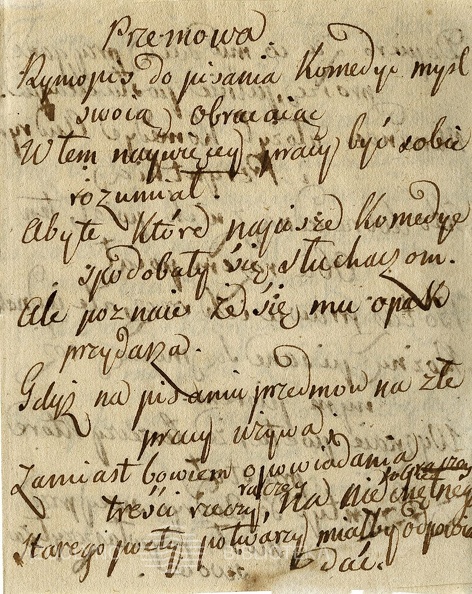 Przemowa
Rymopis do pisania Komedye myśl
swoią obracaiąc
W tem naywięcey pracy być sobie
rozumiał.
Abyte które napisze Komedye
spodobały się słuchaczom.
Ale poznaie że się mu opak
przydaża.
Gdyż na pisaniu przedmow na złe
pracy używa,
Zamiast bowiem opowiadania
treści rzeczy, na niechętnego
raczey
Starego poety potwarzy miałby odpowia
dać.